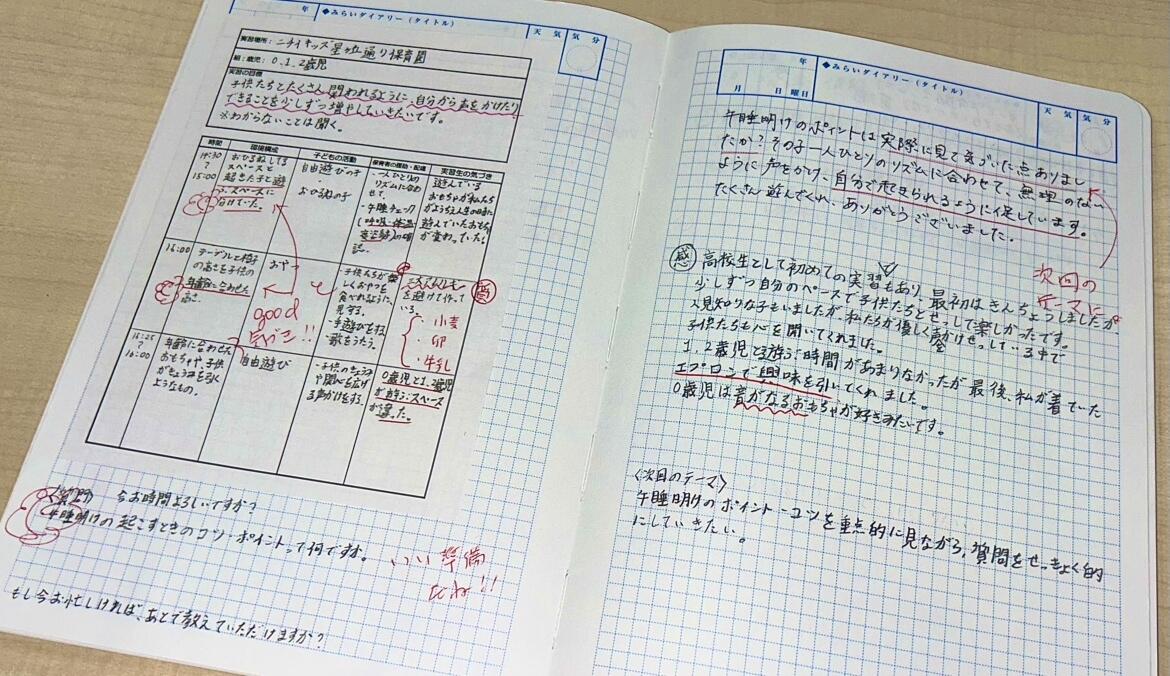 年
◆みらいダイアリー（タイトル）
天 気
気 分
実習場所: ニチイキッズ星ヶ丘通り保育園
組・歳児: 0、1、2歳児
実習の目標
子供たちとたくさん関われるように、自分から声をかけたり
できることを少しずつ増やしていきたいです。
※わからないことは聞く。
時間
環境構成
子どもの活動
保育者の援助・配慮
実習生の気づき
14:30
15:00
おひるねしてる
スペースと
起きた子と遊
ぶ、スペースに
分けていた。
自由遊びの子
・
おひるねの子
・一人ひとりの
リズムに合わ
せて
・午睡チェック
(呼吸、体温
の確
認。
遊んでいる
おもちゃが私たち
遊んでいたおもちゃ
が変わっていた。
15:00
テーブルと椅子
の高さを子供の
年齢に合わせた
高さ。
おやつ
子供たちが楽
しくおやつを
食べれるように、
見守る。
・手遊びをする
・歌をうたう。
を避けて作って
いる。
・小麦
・卵
・牛乳
good
気づき!!
16:00
年齢に合わせた
おもちゃや、子供
がきょうみを引く
ようなもの。
自由遊び
・子供のきょうみ
や関心を広げ
る声かけをする。
0歳児と1、2歳児
が遊ぶスペース
が違った。
〈質問〉 今お時間よろしいですか？
午睡明けの起こすときのコツ・ポイントって何ですか。
いい準備
だね!!
もし今お忙しければ、あとで教えていただけますか？
年
月 日 曜日
◆みらいダイアリー（タイトル）
天 気
気 分
午睡明けのポイントは実際に見て気づいた点ありまし
たか？その子一人ひとりのリズムに合わせて、無理のない
ように声をかけ、自分で起きられるように促しています。
たくさん遊んでくれ、ありがとうございました。
次回の
テーマに
感
高校生として初めての実習もあり、最初はきんちょうしましたが
少しずつ自分のペースで子供たちとせっして楽しかったです。
人見知りな子もいましたが、私たちが優しく声かけせっしている中で
子供たちも心を開いてくれました。
1、2歳児と遊ぶ時間があまりなかったが最後、私が着ていた
エプロンで興味を引いてくれました。
0歳児は音がなるおもちゃが好きみたいです。
〈次回のテーマ〉
午睡明けのポイント・コツを重点的に見ながら、質問をせっきょく的
にしていきたい。